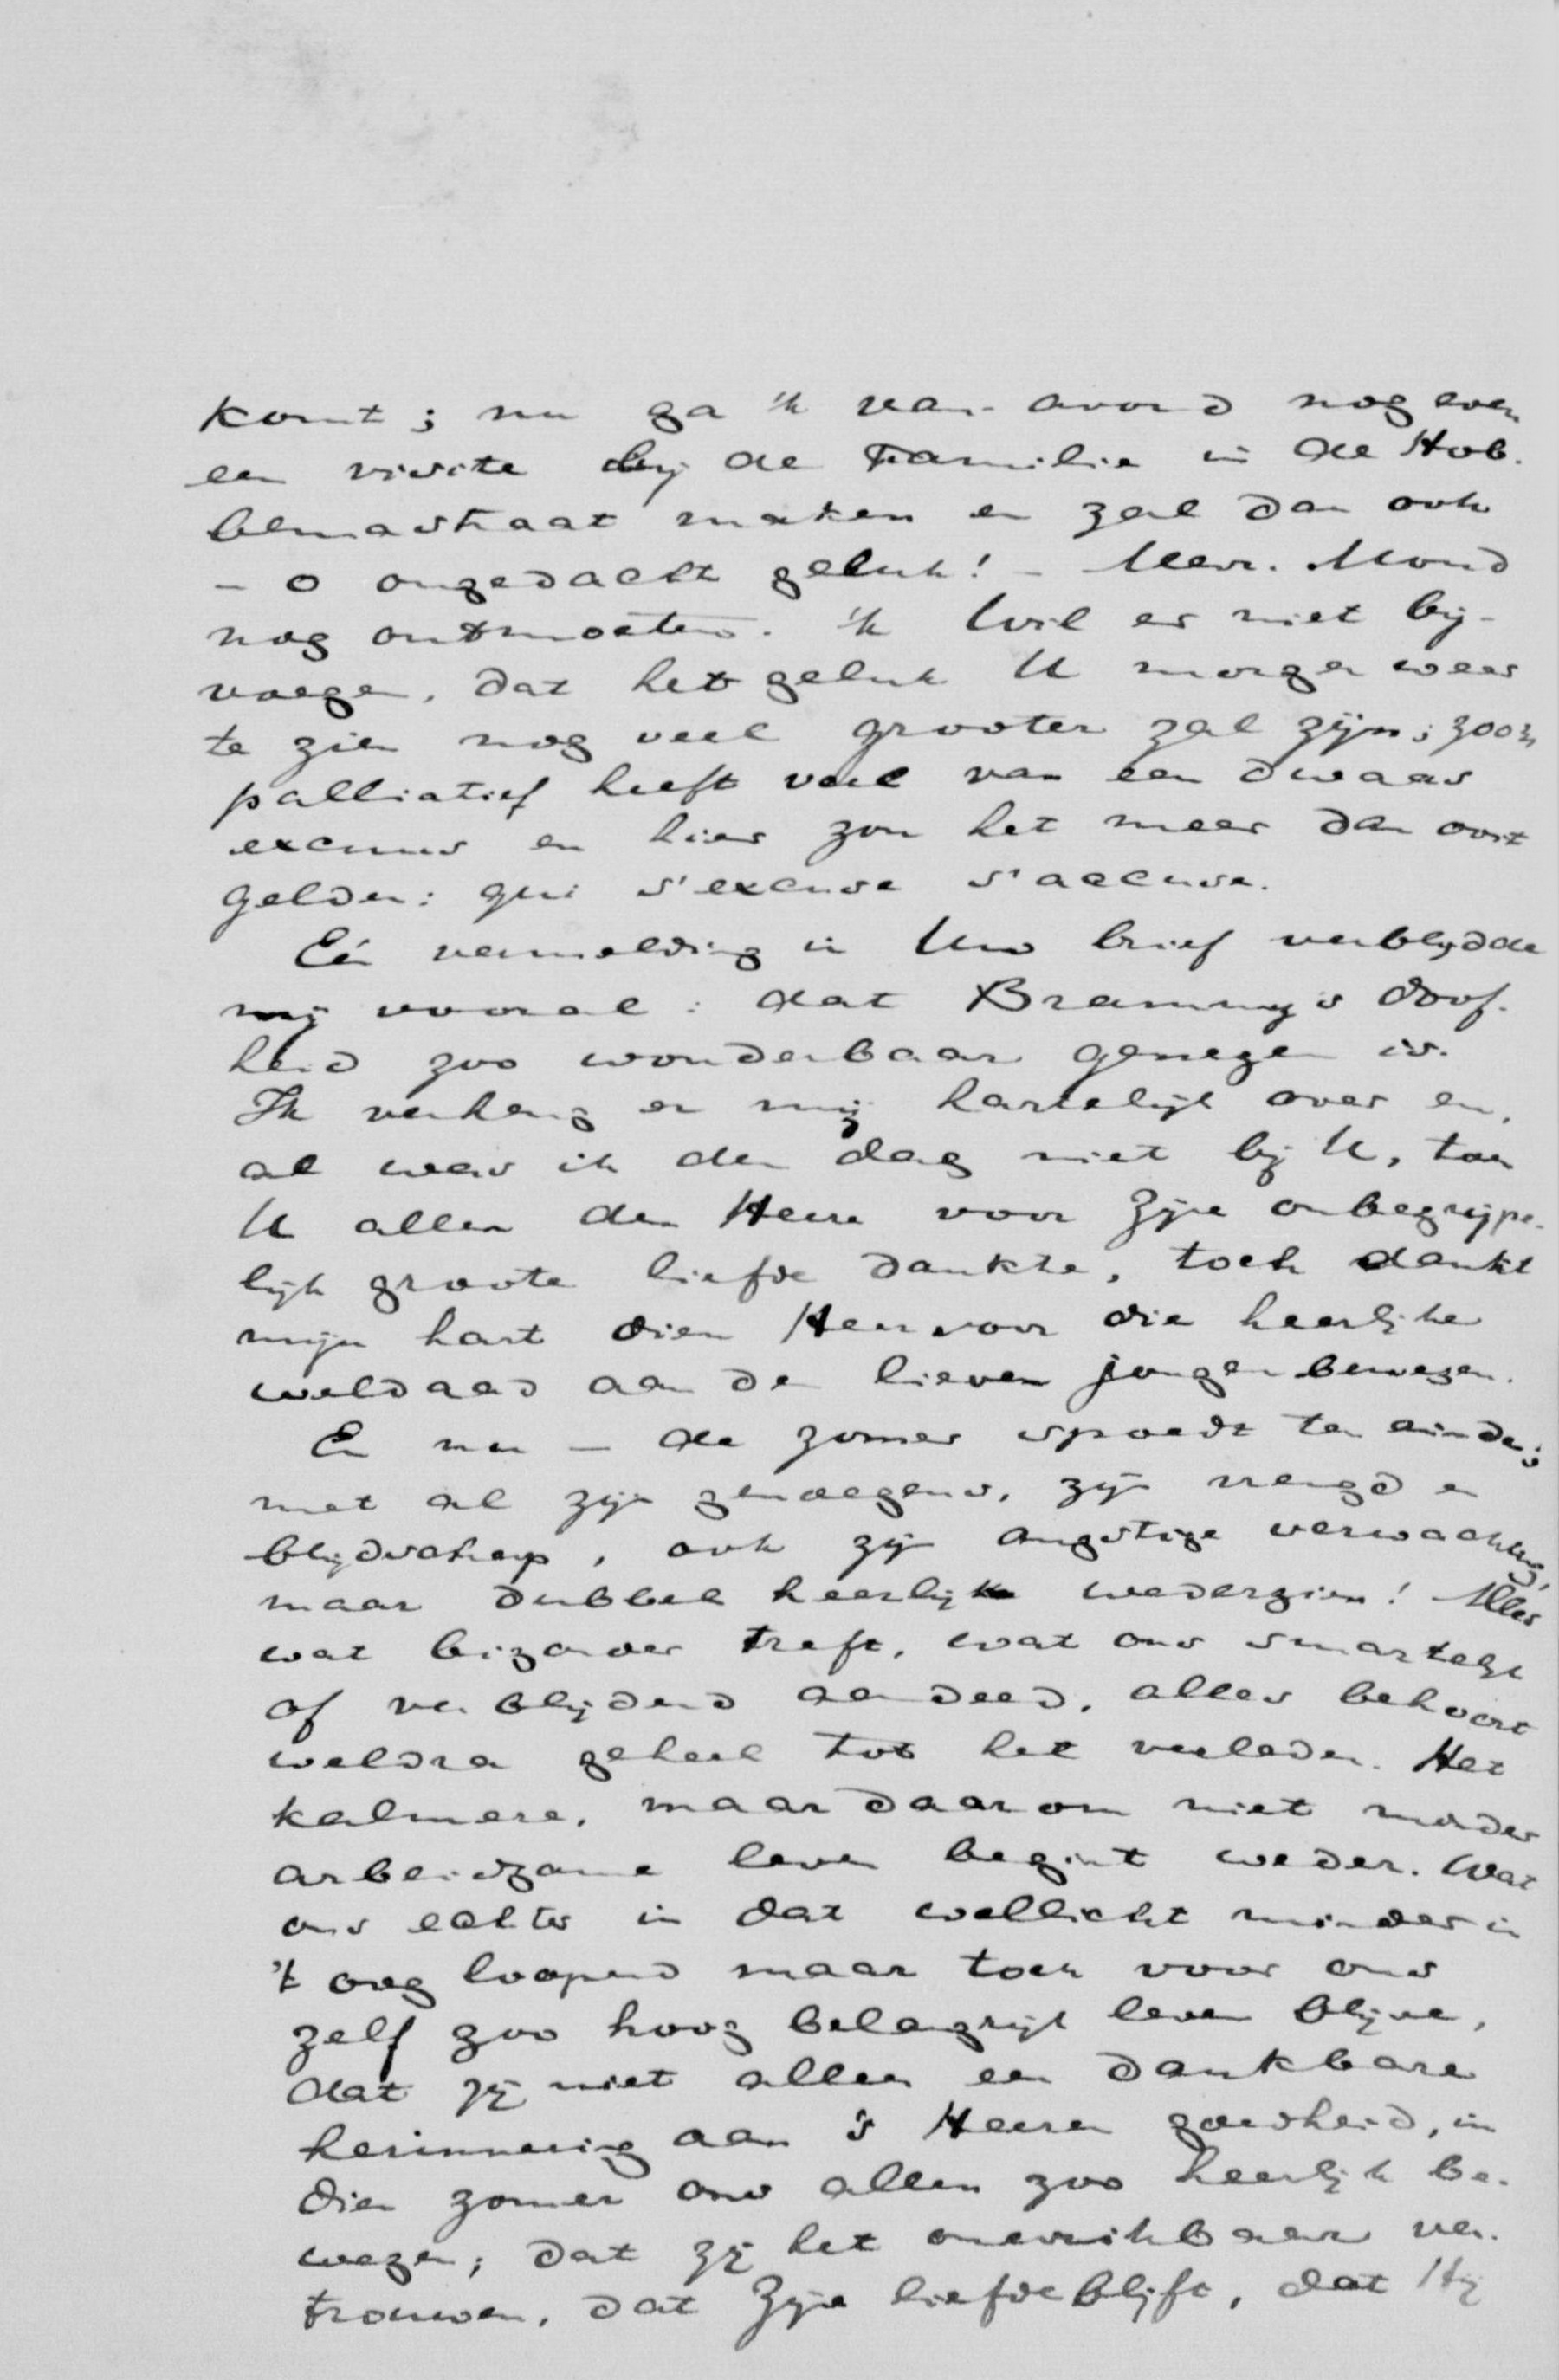 komt; nu ga 'k van-avond nog even
een visite bij de Familie in de Hob-
bemastraat maken en zal dan ook
- o ongedacht geluk! - Mevr. Mond
nog ontmoeten. 'k Wil er niet bij-
voegen, dat het geluk U morgen weer
te zien nog veel grooter zal zijn; zoo'n
palliatief heeft veel van een dwaas
excuus en hier zou het meer dan ooit
gelden: qui s'excuse s'accuse.
Eén vermelding in Uw brief verblijdde
mij vooral: dat Brammy's doof-
heid zoo wonderbaar genezen is.
Ik verheug er mij hartelijk over en,
al was ik den dag niet bij U, toen
U allen den Heere voor Zijne onbegrijpe-
lijk groote liefde dankte, toch dankt
mijn hart dien Heer voor die heerlijke
weldaad aan den lieven jongen bewezen.
En nu – de zomer spoedt ten einde;
met al zijn genoegens, zijn vreugd en
blijdschap, ook zijn angstige verwachting,
maar dubbel heerlijk wederzien! Alles
wat bizonder treft, wat ons smartelijk
of verblijdend aandeed, alles behoort
weldra geheel tot het verleden. Het
kalmere, maar daarom niet minder
arbeidzame leven begint weder. Wat
ons echter in dat wellicht minder in
't oog loopend maar toch voor ons
zelf zoo hoog belangrijk leven blijve,
dat zij niet alleen een dankbare
herinnering aan 's Heeren goedheid, in
dien zomer ons allen zoo heerlijk be-
wezen; dat zij het onwrikbaar ver-
trouwen, dat Zijne liefde blijft, dat Hij